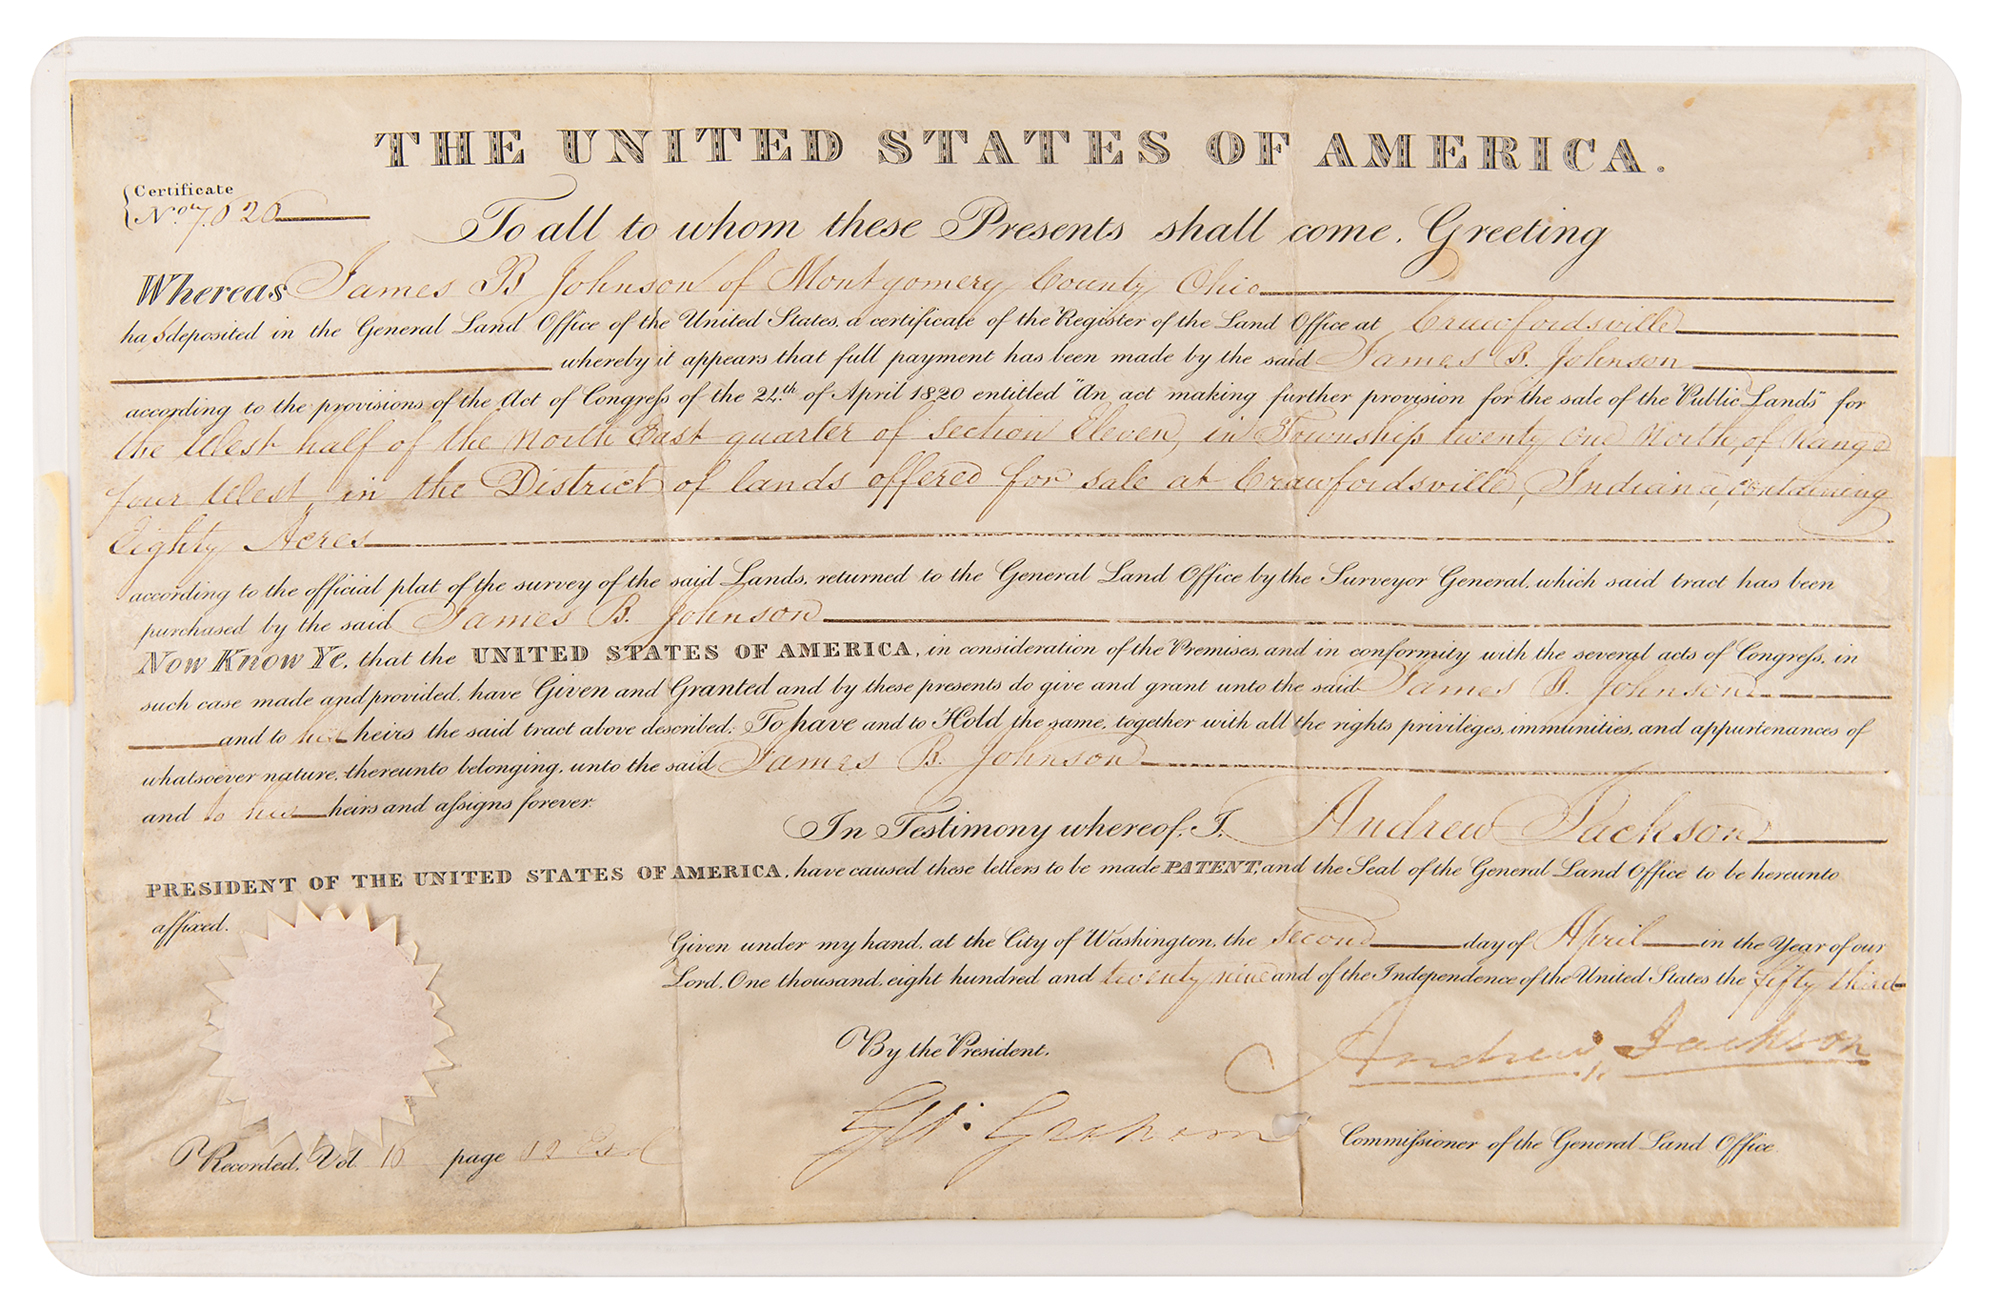 THE UNITED STATES OF AMERICA.
Certificate
No. 7.020
To all to whom these Presents shall come, Greeting
Whereas James B Johnson of Montgomery County Ohio
has deposited in the General Land Office of the United States, a certificate of the Register of the Land Office at Crawfordsville
whereby it appears that full payment has been made by the said James B. Johnson
according to the provisions of the Act of Congress of the 24th of April 1820 entitled "An act making further provision for the sale of the Public Lands" for
the West half of the North East quarter of Section Eleven, in Township twenty One North, of Range
four West, in the District of lands offered for sale at Crawfordsville, Indiana, containing
Eighty Acres
according to the official plat of the survey of the said Lands, returned to the General Land Office by the Surveyor General, which said tract has been
purchased by the said James B. Johnson
Now Know Ye, that the UNITED STATES OF AMERICA, in consideration of the Premises, and in conformity with the several acts of Congress, in
such case made and provided, have Given and Granted and by these presents do give and grant unto the said James B. Johnson
and to his heirs the said tract above described: To have and to Hold the same, together with all the rights privileges, immunities, and appurtenances of
whatsoever nature, thereunto belonging, unto the said James B. Johnson
and to his heirs and assigns forever.
In Testimony whereof, I, Andrew Jackson
PRESIDENT OF THE UNITED STATES OF AMERICA, have caused these letters to be made PATENT, and the Seal of the General Land Office to be hereunto
affixed.
Given under my hand, at the City of Washington, the second day of April in the Year of our
Lord, One thousand, eight hundred and twenty nine and of the Independence of the United States the fifty third
By the President.
Andrew Jackson
GW. Graham Commissioner of the General Land Office
Recorded, Vol. 10 page 12